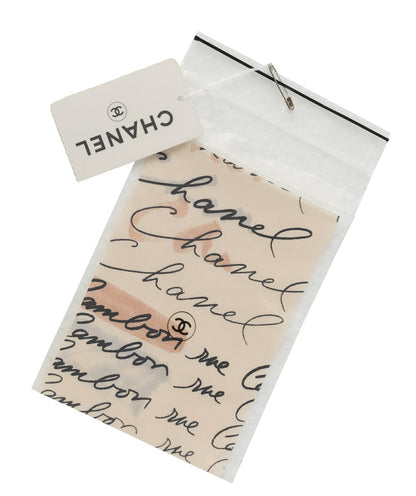 CHANEL
Chanel
Chanel
Chanel
Cambon rue Ca
Cambon rue Ca
Cambon rue Ca
Cambon rue